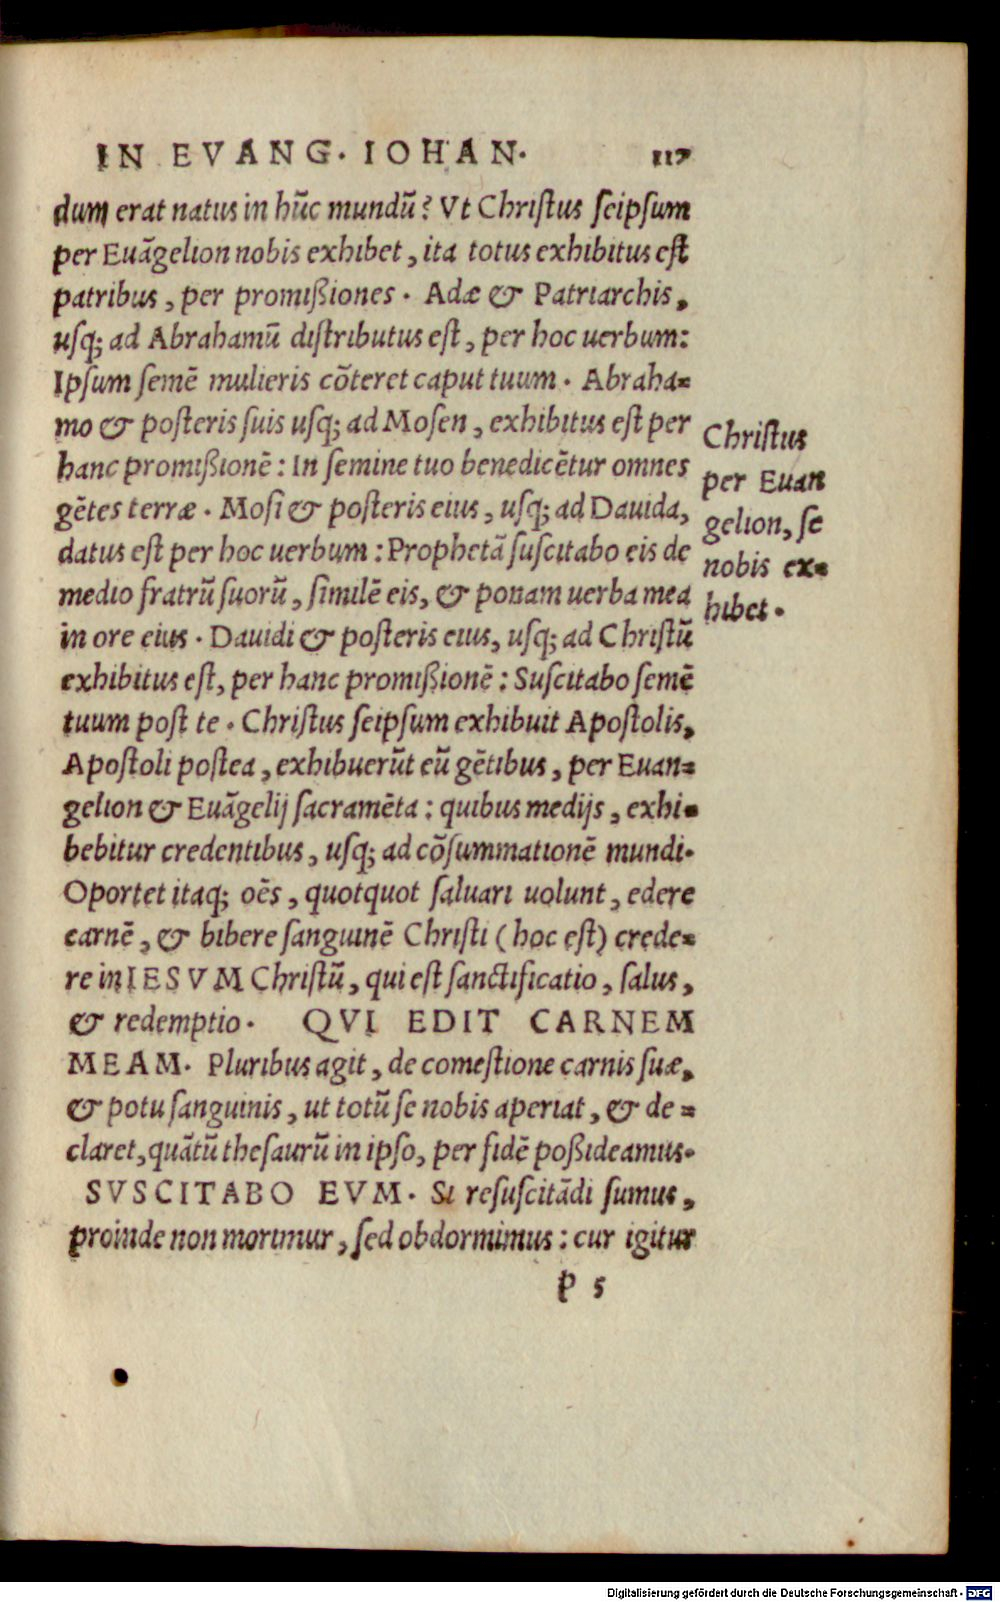 IN EVANG. IOHAN. 117
dum erat natus in hūc mundū? Vt Christus seipsum
per Euāgelion nobis exhibet, ita totus exhibitus est
patribus, per promißiones. Adæ & Patriarchis,
usq; ad Abrahamū distributus est, per hoc uerbum:
Ipsum semē mulieris cōteret caput tuum. Abraha-
mo & posteris suis usq; ad Mosen, exhibitus est per
hanc promißionē: In semine tuo benedicētur omnes
gētes terræ. Mosi & posteris eius, usq; ad Dauida,
datus est per hoc uerbum: Prophetā suscitabo eis de
medio fratrū suorū, similē eis, & ponam uerba mea
in ore eius. Dauidi & posteris eius, usq; ad Christū
exhibitus est, per hanc promißionē: Suscitabo semē
tuum post te. Christus seipsum exhibuit Apostolis,
Apostoli postea, exhibuerūt eū gētibus, per Euan-
gelion & Euāgelij sacramēta: quibus medijs, exhi-
bebitur credentibus, usq; ad cōsummationē mundi.
Oportet itaq; oēs, quotquot saluari uolunt, edere
carnē, & bibere sanguinē Christi (hoc est) crede-
re in IESVM Christū, qui est sanctificatio, salus,
& redemptio. QVI EDIT CARNEM
MEAM. Pluribus agit, de comestione carnis suæ,
& potu sanguinis, ut totū se nobis aperiat, & de-
claret, quātū thesaurū in ipso, per fidē poßideamus.
SVSCITABO EVM. Si resuscitādi sumus,
proinde non morimur, sed obdormimus: cur igitur
P 5
Christus
per Euan
gelion, se
nobis ex-
hibet.
Digitalisierung gefördert durch die Deutsche Forschungsgemeinschaft - DFG